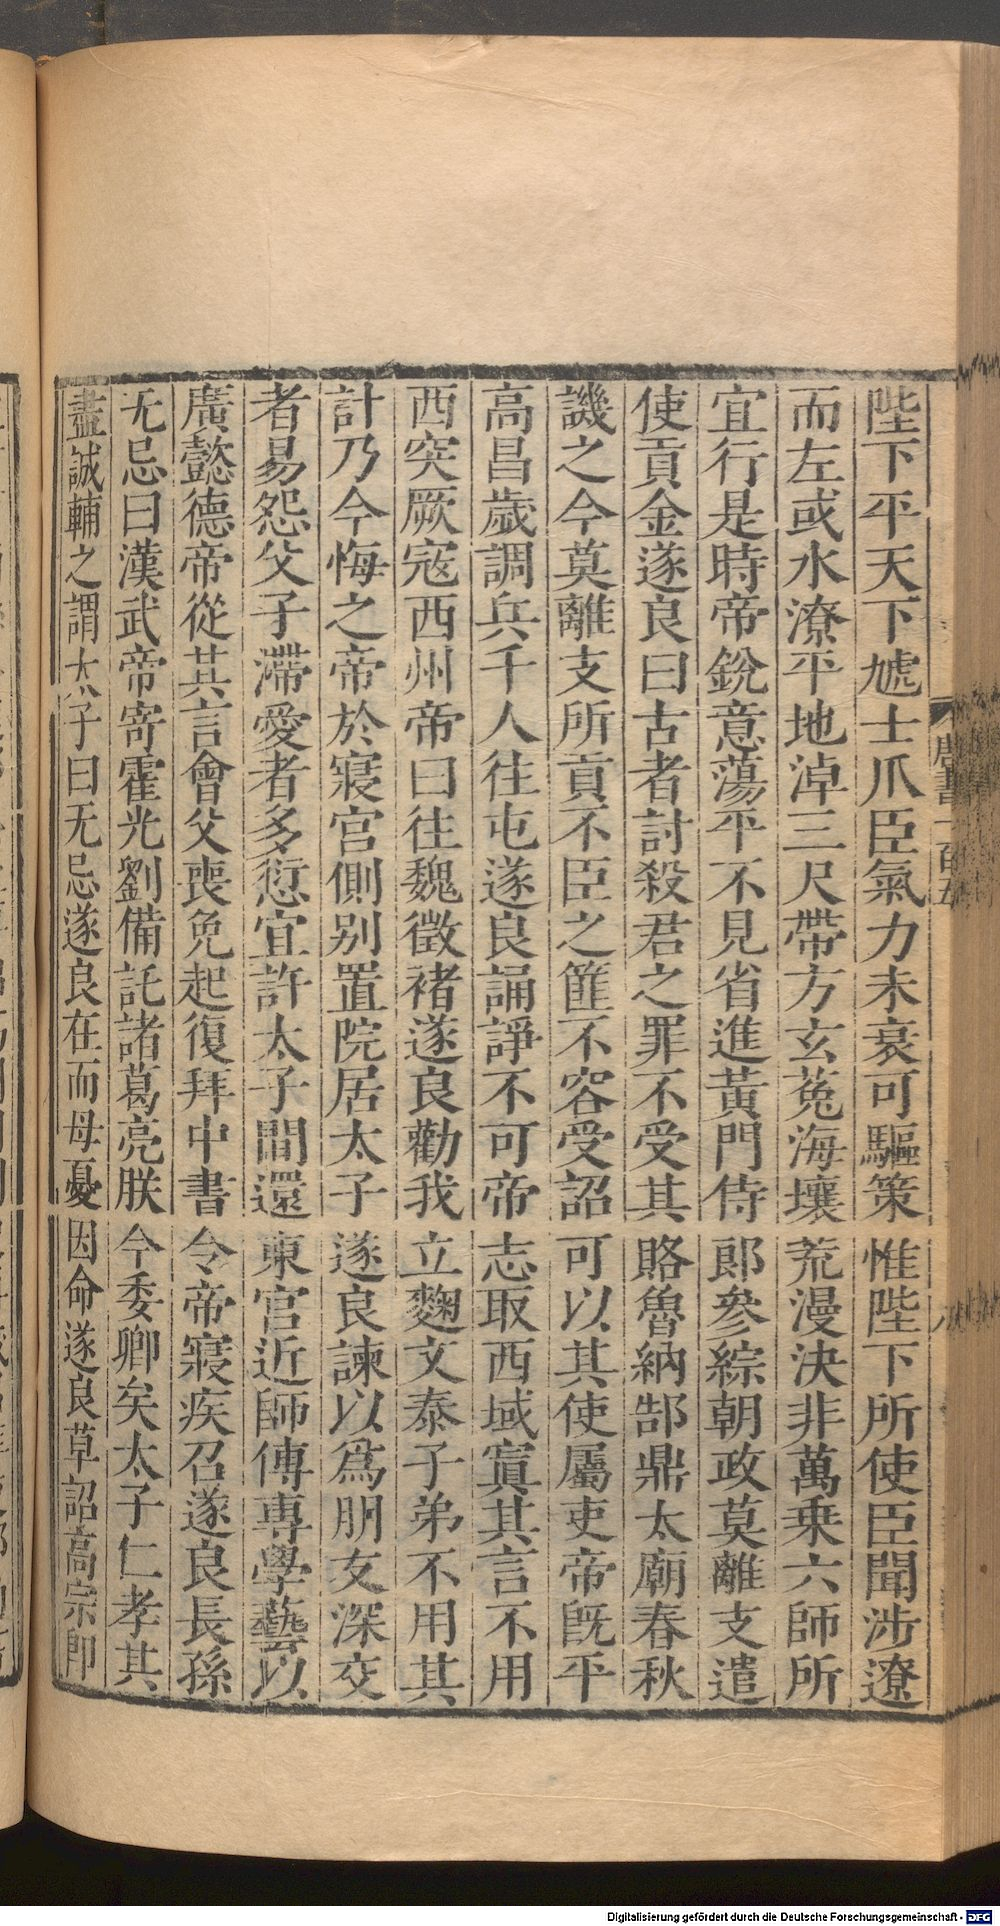 陛下平天下虓士爪臣氣力未衰可驅策惟陛下所使臣聞涉遼
而左或水潦平地淖三尺帶方玄菟海壤荒漫決非萬乗六師所
宜行是時帝銳意蕩平不見省進黃門侍郎參綜朝政莫離支遣
使貢金遂良曰古者討殺君之罪不受其賂魯納郜鼎太廟春秋
譏之今莫離支所貢不臣之篚不容受詔可以其使屬吏帝旣平
高昌歲調兵千人往屯遂良誦諍不可帝志取西域寘其言不用
西突厥寇西州帝曰往魏徵褚遂良勸我立麴文泰子弟不用其
計乃今悔之帝於寢宮側别置院居太子遂良諫以爲朋友深交
者易怨父子滯愛者多愆宜許太子間還東宫近師傅專學藝以
廣懿德帝從其言會父喪免起復拜中書令帝寢疾召遂良長孫
无忌曰漢武帝寄霍光劉備託諸葛亮朕今委卿矣太子仁孝其
盡誠輔之謂太子曰无忌遂良在而母憂因命遂良草詔高宗即
唐書一百五
八
Digitalisierung gefördert durch die Deutsche Forschungsgemeinschaft - DFG